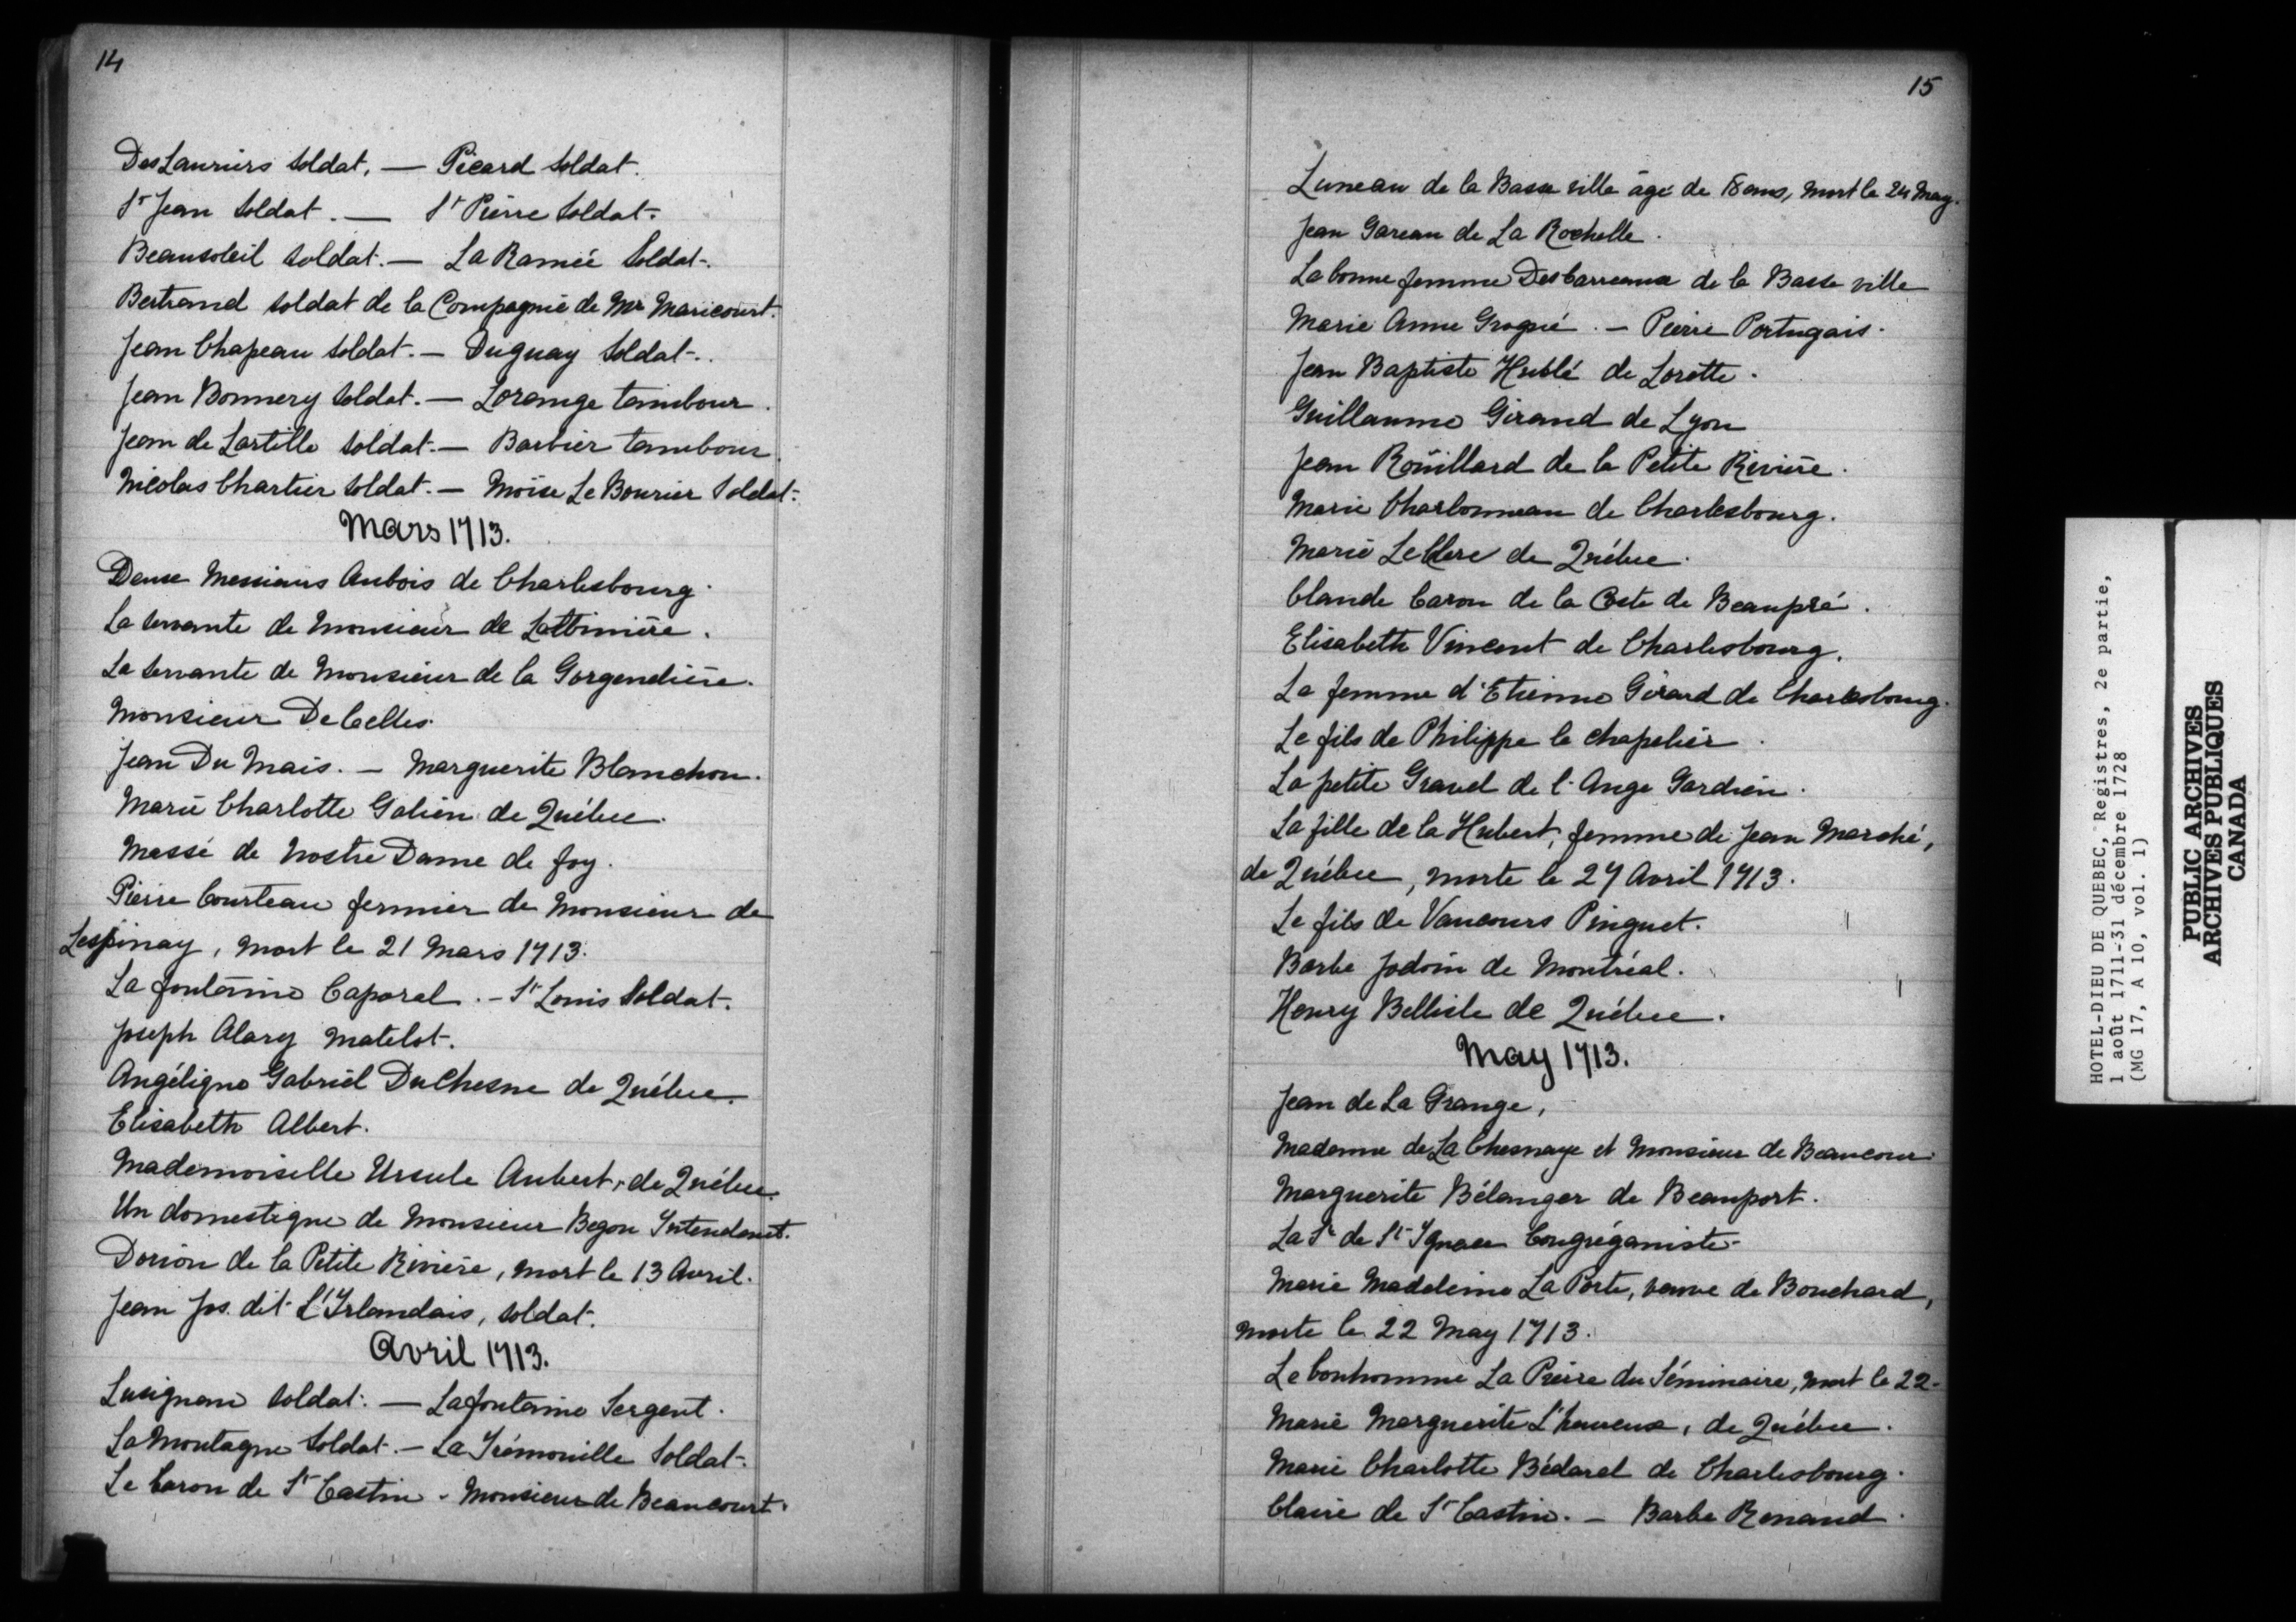 14
DesLauriers soldat. — Picard soldat.
St Jean soldat. — St Pierre soldat.
Beausoleil soldat. — La Ramée soldat.
Bertrand soldat de la Compagnie de Mr Maricourt.
Jean Chapeau soldat. — Duguay soldat.
Jean Bonnery soldat. — Lorange tambour.
Jean de Lartille soldat. — Barbier tambour.
Nicolas Chartier soldat. — Moïse Le Bourier soldat.
Mars 1713.
Deux Messieurs Aubois de Charlesbourg.
La servante de Monsieur de Lotbinière.
La servante de Monsieur de la Gorgendière.
Monsieur DeCelles.
Jean Du Mais. — Marguerite Blanchon.
Marie Charlotte Galien de Québec.
Massé de Nostre Dame de foy.
Pierre Courteau fermier de Monsieur de
Lespinay, mort le 21 Mars 1713.
La fontaine Caporal. — St Louis soldat.
Joseph Alary matelot.
Angélique Gabriel DuChesne de Québec.
Elisabeth Albert.
Mademoiselle Ursule Aubert, de Québec.
Un domestique de Monsieur Begon Intendant.
Dorion de la Petite Rivière, mort le 13 Avril.
Jean Jos. dit L'Irlandais, soldat.
Avril 1713.
Lusignan soldat. — Lafontaine Sergent.
La Montagne soldat. — La Trémouille soldat.
Le baron de St Castin. Monsieur de Beaucourt.
15
Luneau de la Basse ville âgé de 18 ans, mort le 24 May.
Jean Gareau de La Rochelle.
La bonne femme Desbarreaux de la Basse ville
Marie Anne Grogué. — Pierre Portugais.
Jean Baptiste Hublé de Lorette.
Guillaume Giraud de Lyon
Jean Roüillard de la Petite Rivière.
Marie Charbonneau de Charlesbourg.
Marie LeClerc de Québec.
Claude Caron de la Coste de Beaupré.
Elisabeth Vincent de Charlesbourg.
La femme d'Etienne Girard de Charlesbourg.
Le fils de Philippe le chapelier.
La petite Gravel de l'Ange Gardien.
La fille de la Hubert, femme de Jean Marché,
de Québec, morte le 27 Avril 1713.
Le fils de Vaucours Pinguet.
Barbe Jodoin de Montréal.
Henry Bellisle de Québec.
May 1713.
Jean de La Grange,
Madame de La Chesnaye et Monsieur de Beaucour.
Marguerite Bélanger de Beauport.
La Sr de St Ignace Congréganiste.
Marie Madeleine La Porte, veuve de Bouchard,
morte le 22 May 1713.
Le bonhomme La Pierre du Séminaire, mort le 22.
Marie Marguerite L'heureux, de Québec.
Marie Charlotte Bédard de Charlesbourg.
Claire de St Castin. — Barbe Renaud.
HOTEL-DIEU DE QUEBEC, Registres, 2e partie,
1 août 1711-31 décembre 1728
(MG 17, A 10, vol. 1)
PUBLIC ARCHIVES
ARCHIVES PUBLIQUES
CANADA